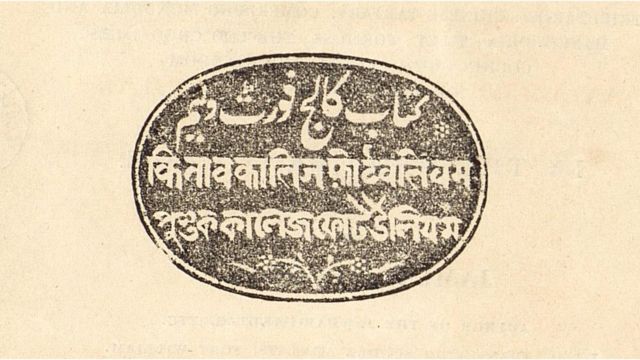 کتاب کالج فورٹ ولیم
किताब कालिज फ़ोर्ट वलियम
পুস্তক কালেজ ফোর্ট উলিয়ম